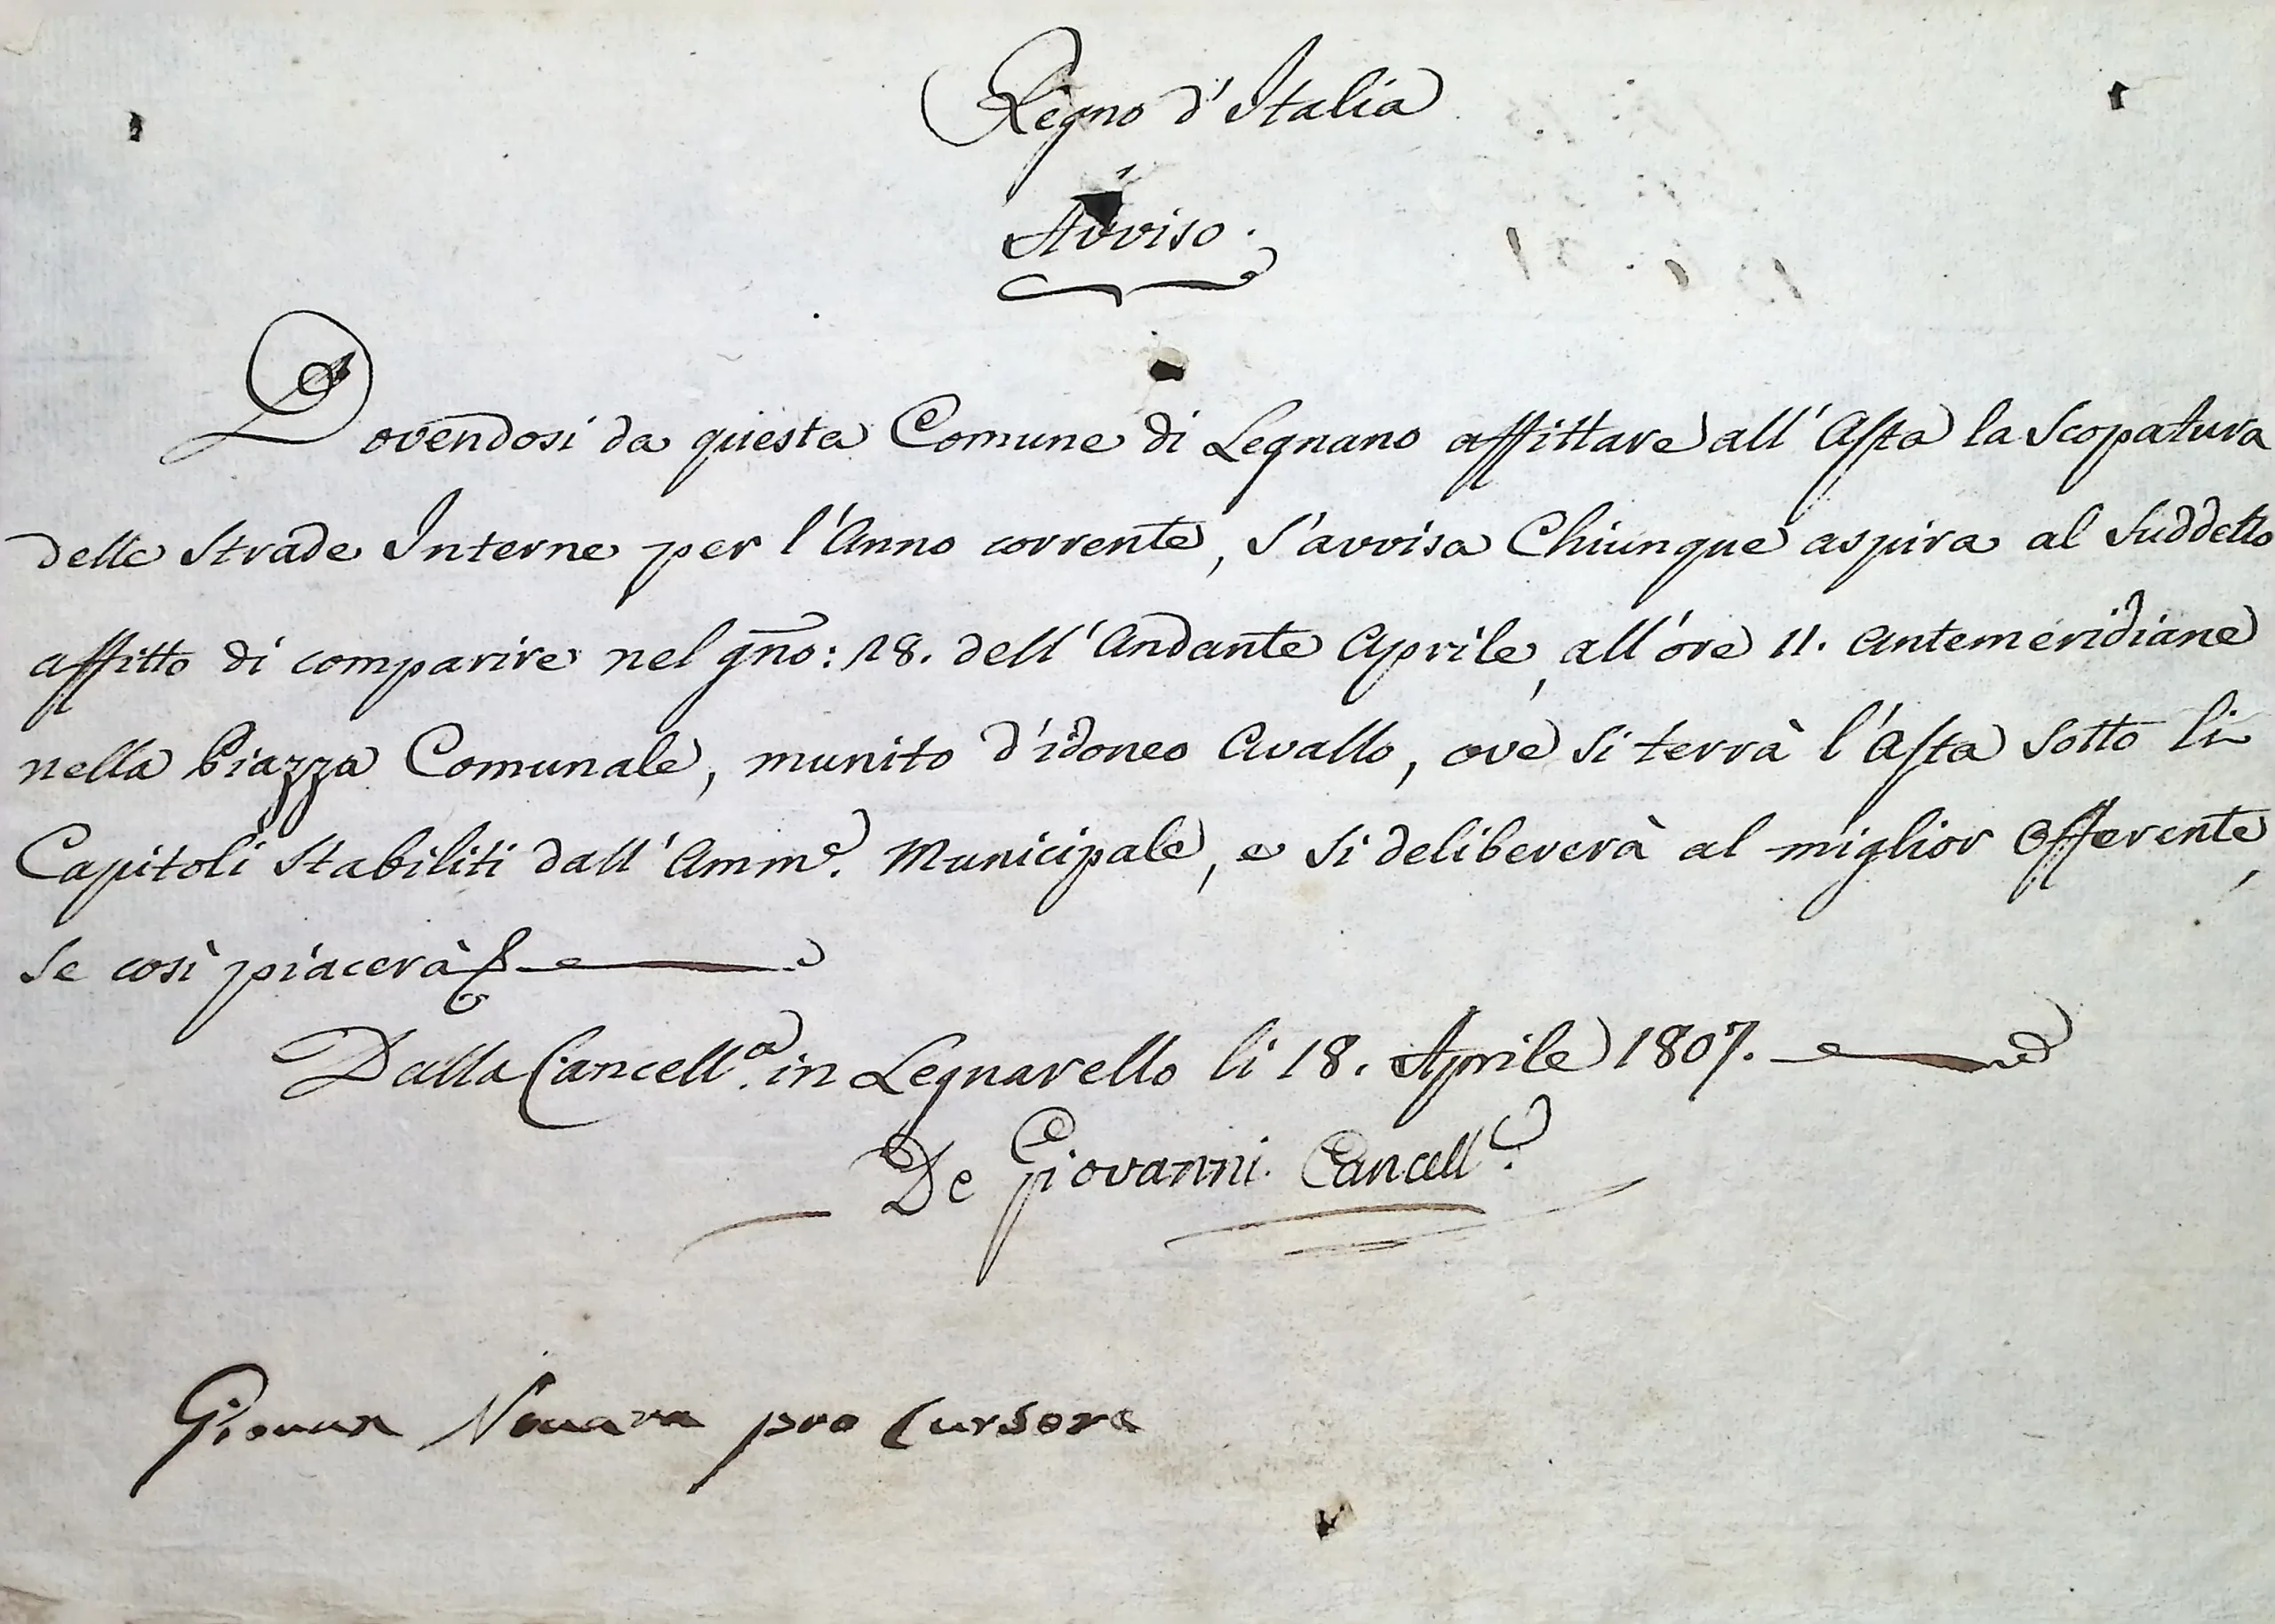 Regno d'Italia
Avviso.
Dovendosi da questa Comune di Legnano affittare all'Asta la Scopatura
delle Strade Interne per l'Anno corrente, s'avvisa Chiunque aspira al Suddetto
affitto di comparire nel gno: 28. dell'Andante Aprile, all'ore 11. Antemeridiane
nella Piazza Comunale, munito d'idoneo Avallo, ove si terrà l'Asta sotto li
Capitoli Stabiliti dall'Amme. Municipale, e si delibererà al miglior Offerente,
se così piacerà
Dalla Cancella. in Legnarello li 18. Aprile 1807.
De Giovanni Cancelle.
pro Cursore